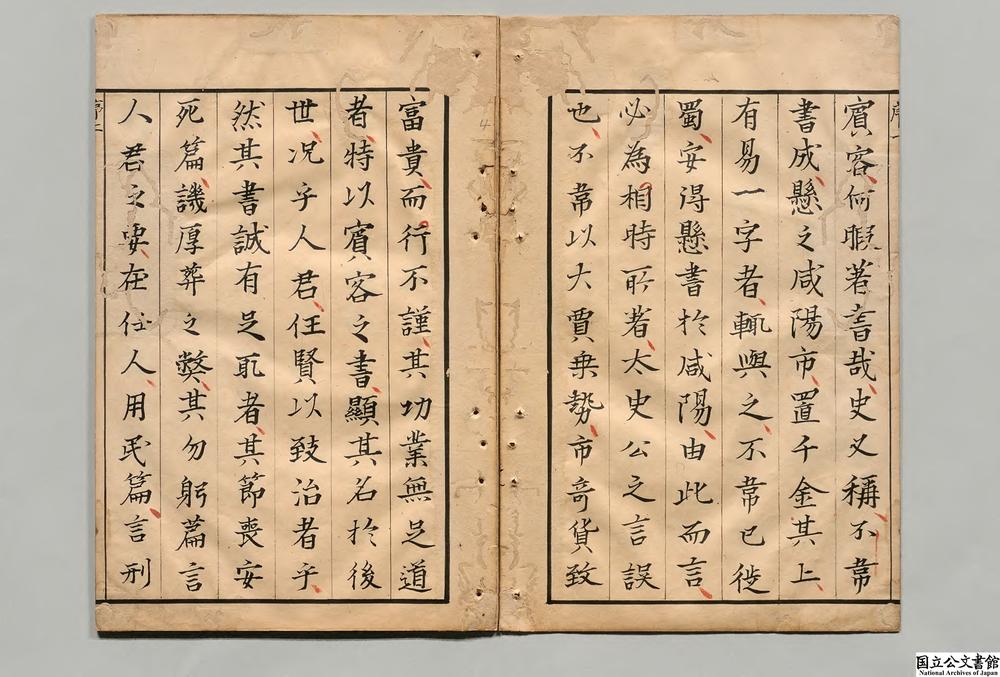 賔容何暇著書哉史又稱不韋
書成懸之咸陽市置千金其上
有易一字者輒與之不韋已徙
蜀安得懸書於咸陽由此而言
必為相時所著太史公之言誤
也不韋以大賈乗勢市竒貨致
富貴而行不謹其功業無足道
者特以賔客之書顯其名於後
世况乎人君任賢以致治者乎
然其書誠有足取者其節喪安
死篇譏厚葬之弊其勿躬篇言
人君之要在任人用民篇言刑
序二
4
国立公文書館
National Archives of Japan